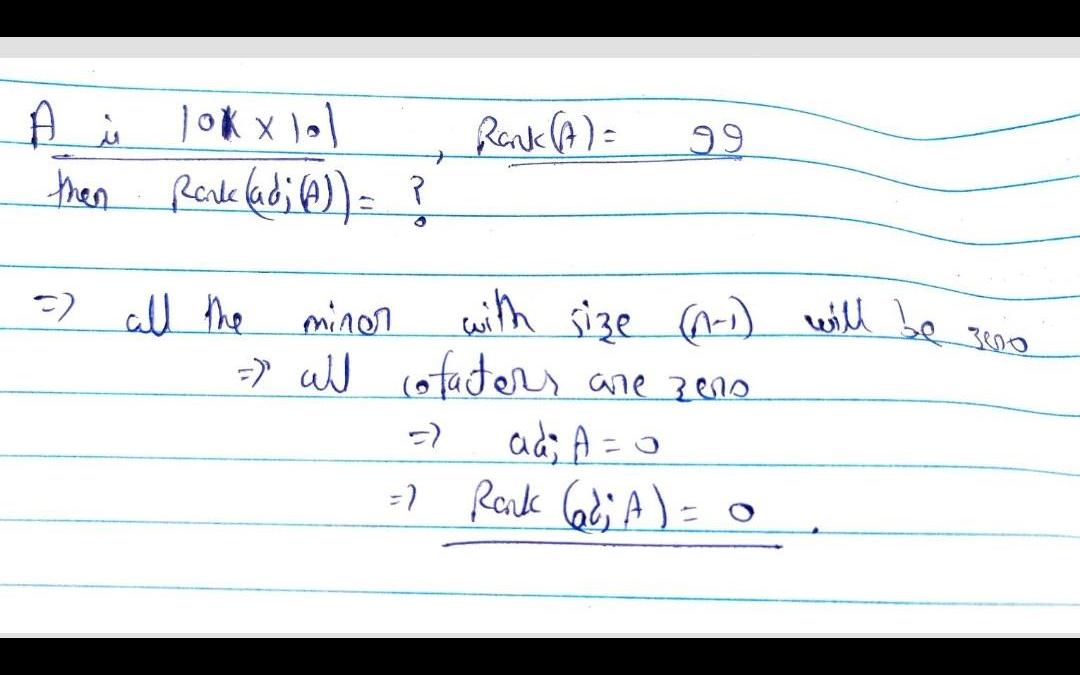 A is 101 × 101, Rank(A) = 99
then Rank(adj(A)) = ?
=> all the minor with size (n-1) will be zero
=> all cofactors are zero
=> adj A = 0
=> Rank (adj A) = 0.